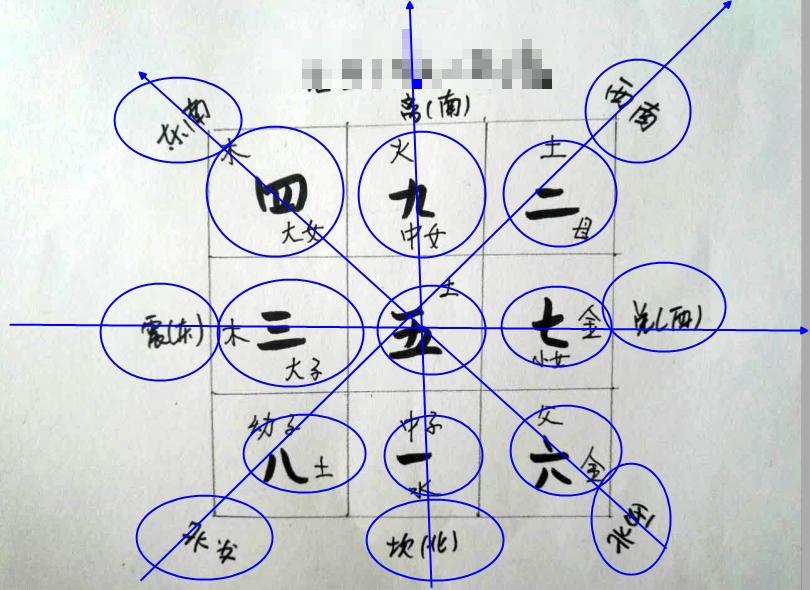 离(南)
东南
西南
木
火
土
四
九
二
大女
中女
母
土
震(东)
木
三
五
七
金
兑(西)
大子
少女
幼子
中子
父
八
土
一
六
金
水
坎(北)